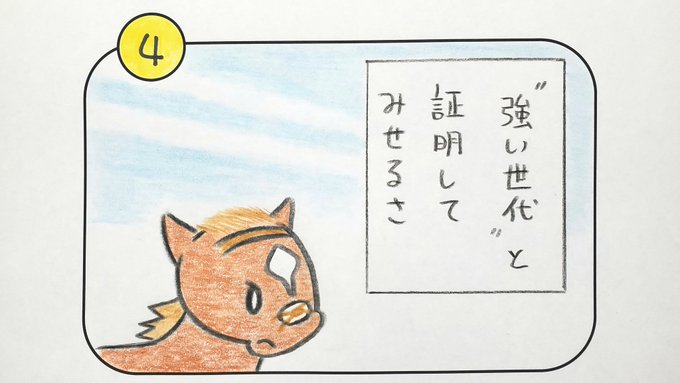 4
“強い世代”と
証明して
みせるさ